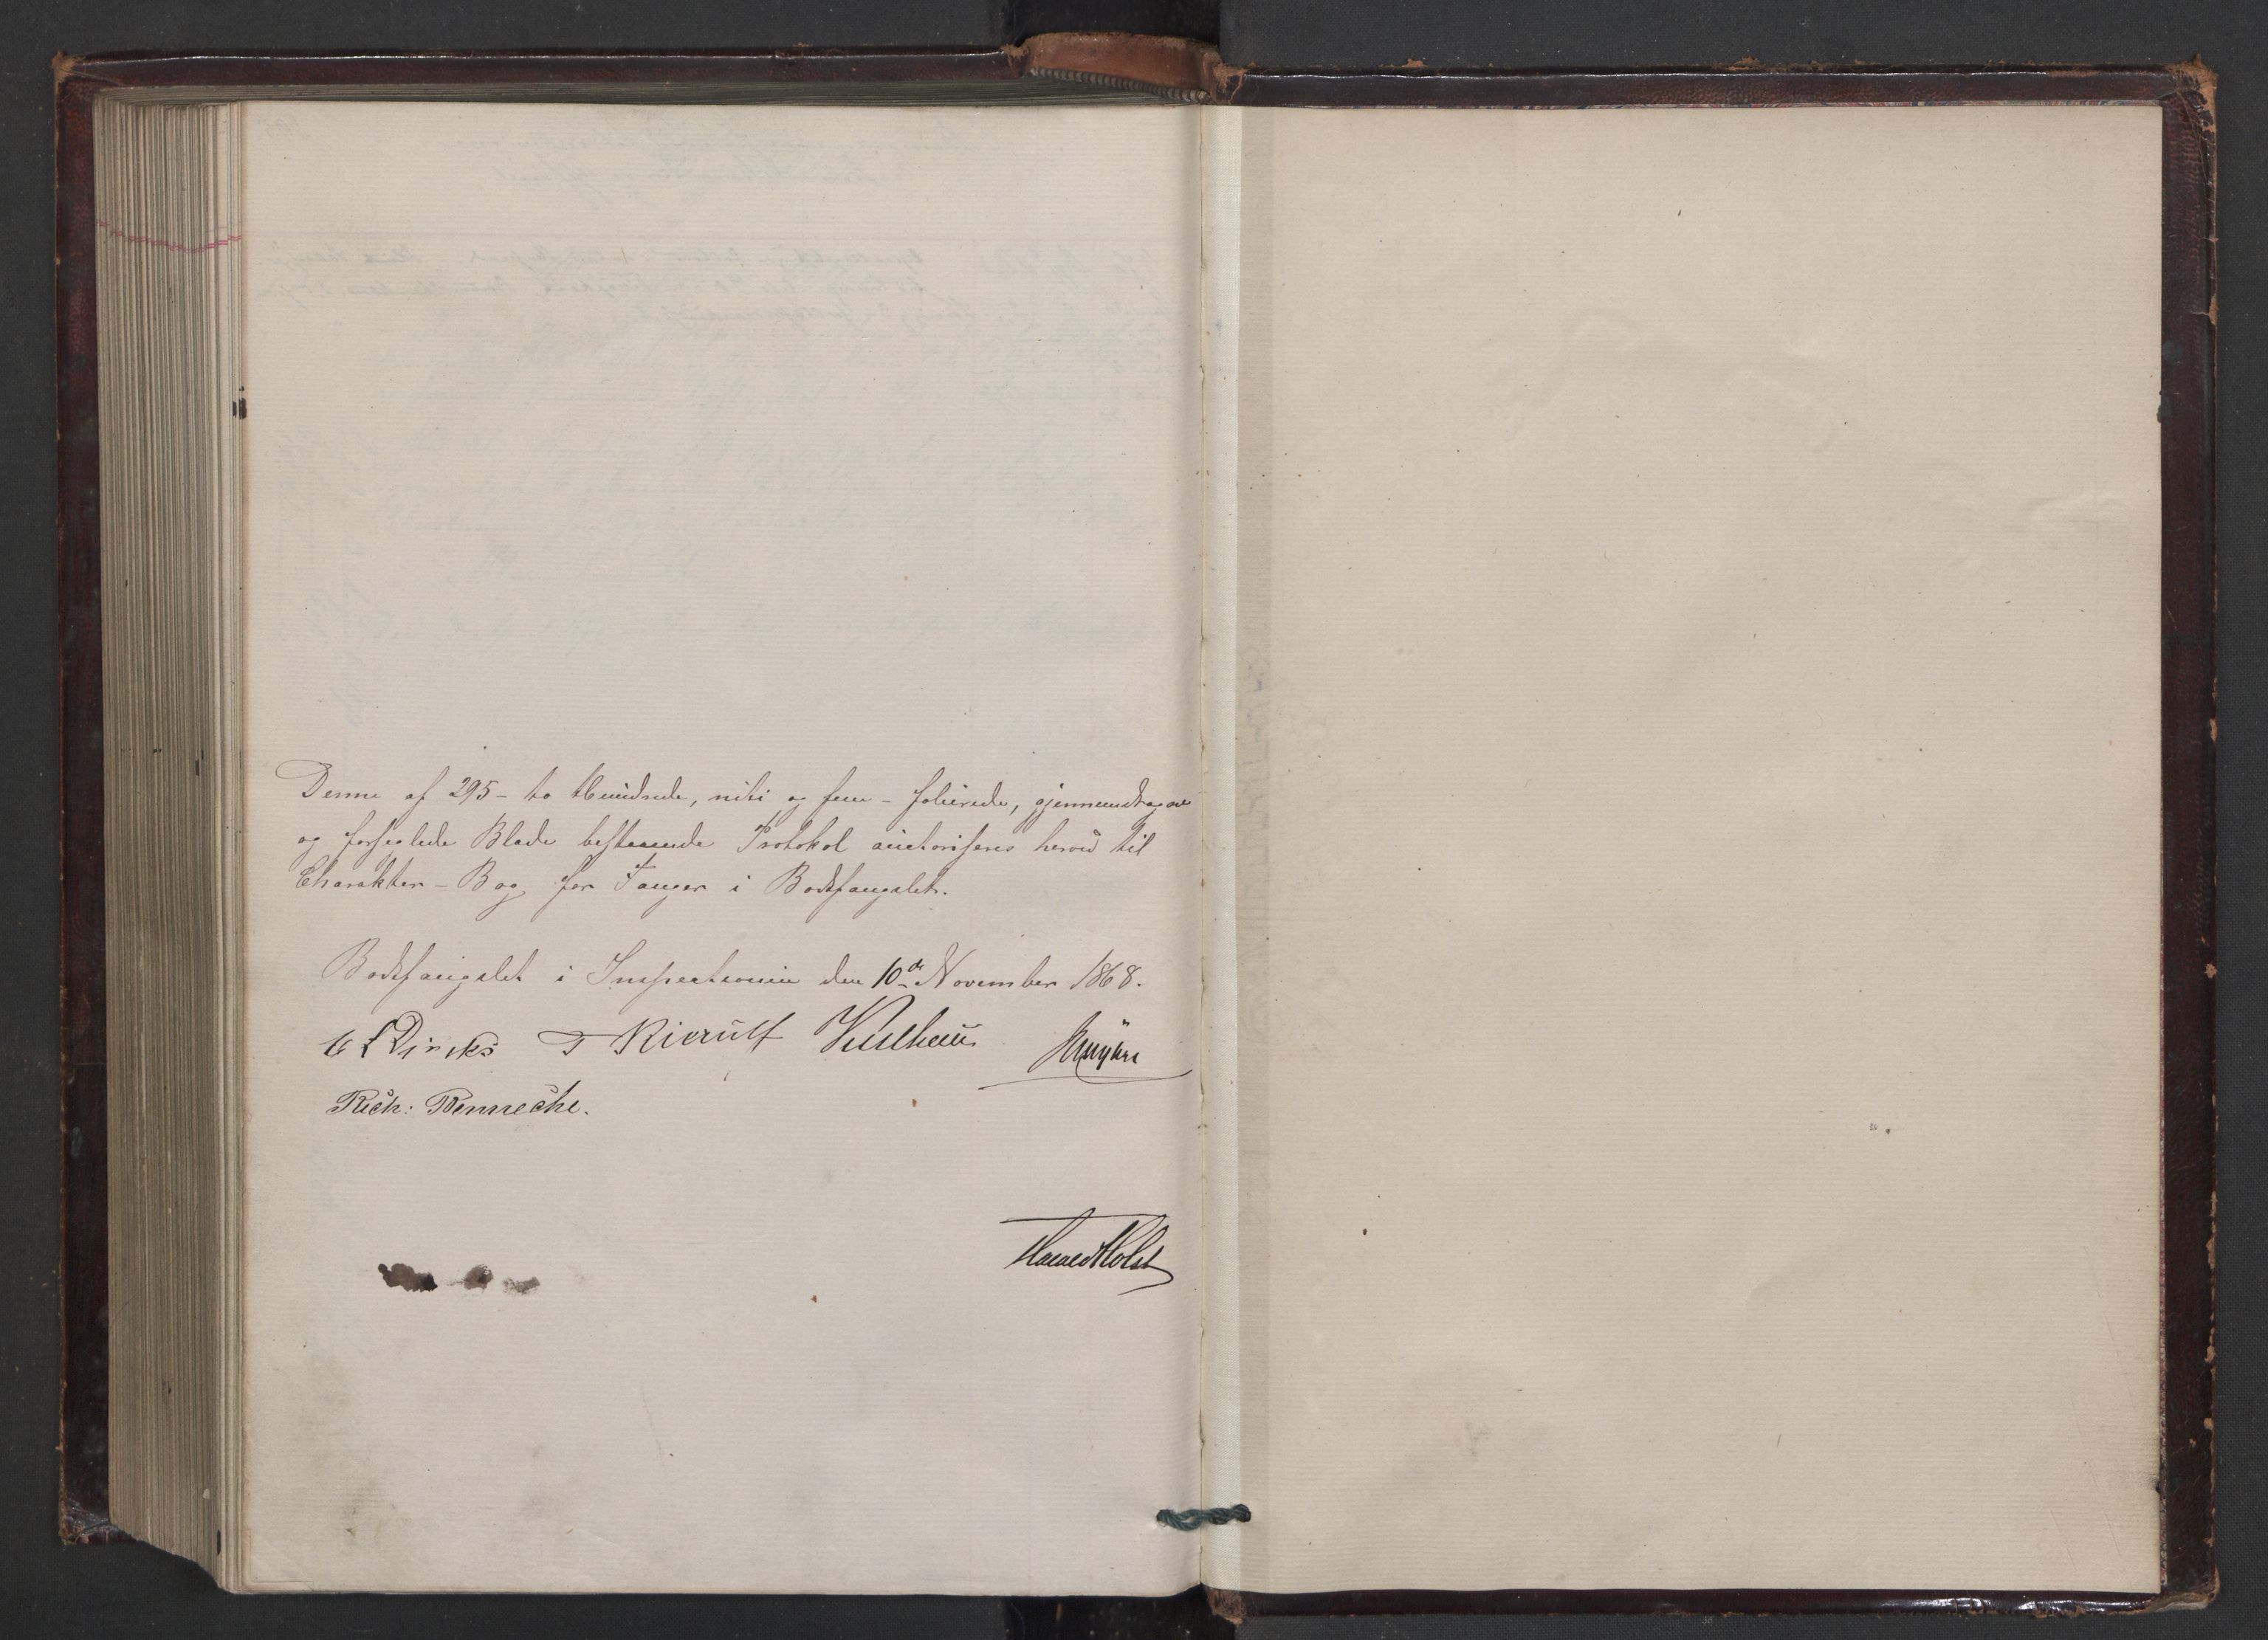 Denne af 295 - to Hundrede, niti og fem - folierede, gjennemdragne
og forseglede Blade bestaaende Protokol autoriseres herved til
Charakter-Bog for Fanger i Bodsfængslet.
Bodsfængslet i Inspectionen den 10de November 1868.
Dircks T Kierulf
Rich: Petersen.
Harald Holst